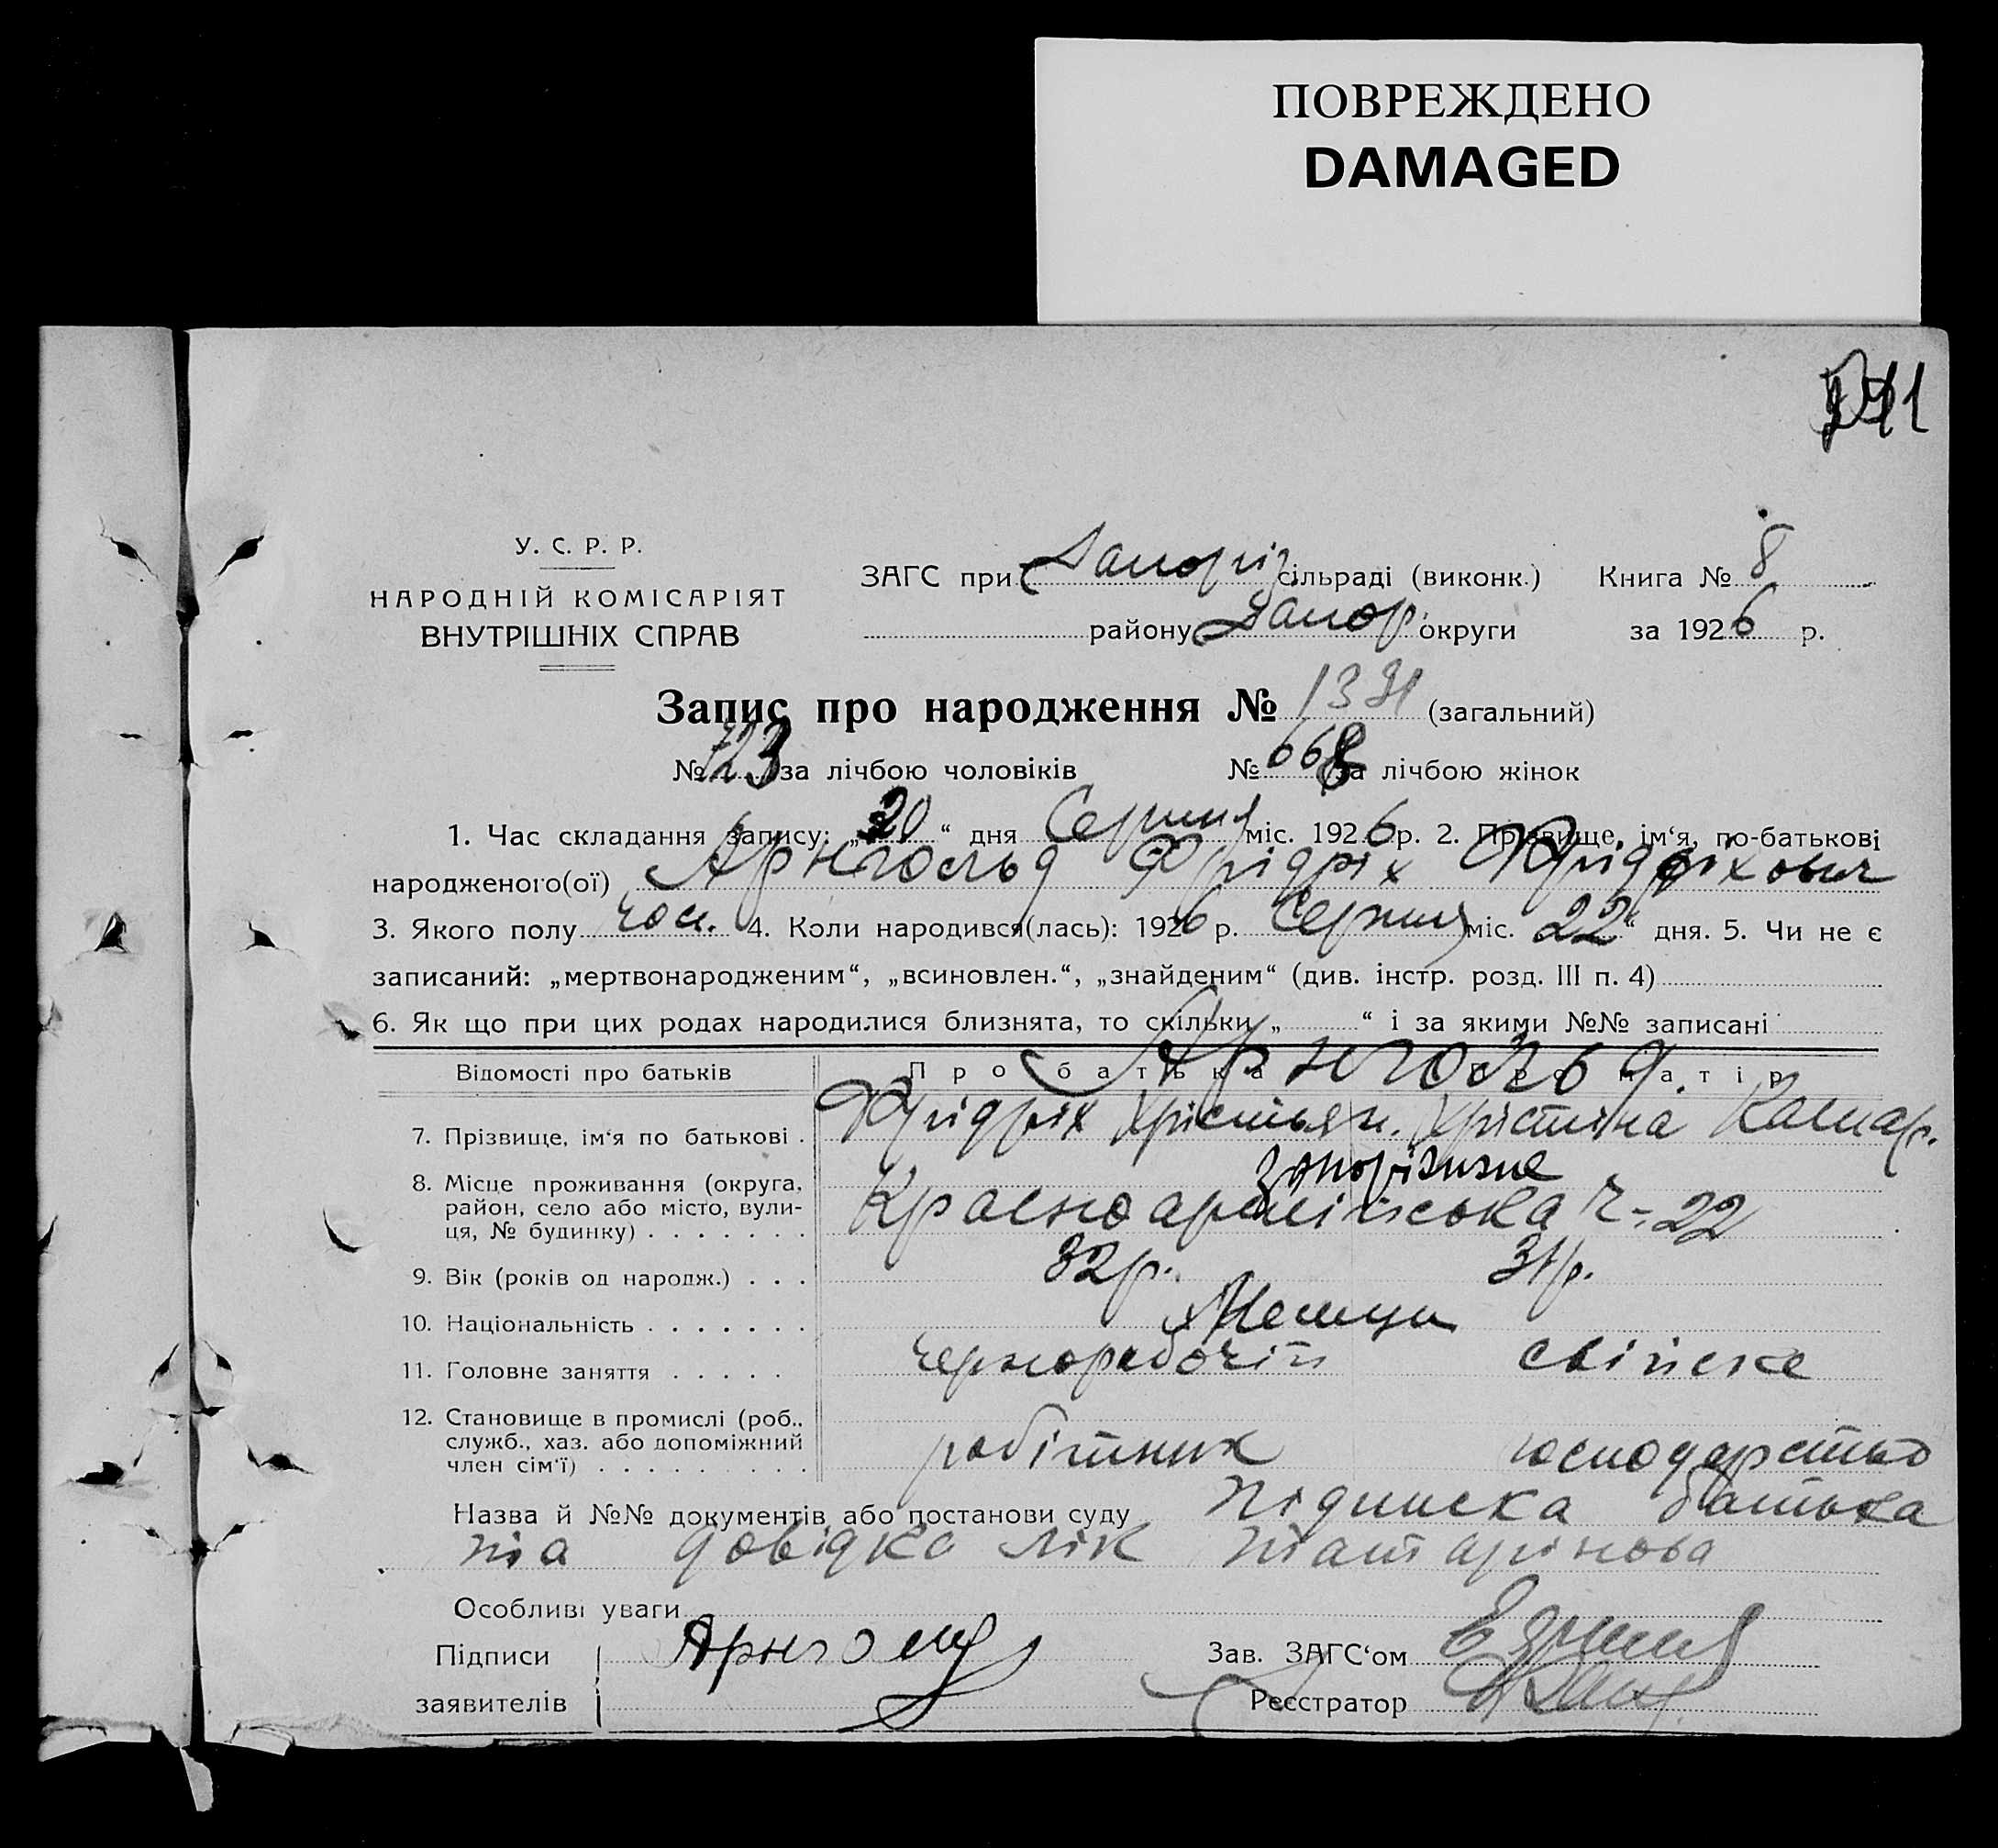 ПОВРЕЖДЕНО
DAMAGED
У. С. Р. Р.
НАРОДНІЙ КОМІСАРІЯТ
ВНУТРІШНІХ СПРАВ
ЗАГС при Запоріз. сільраді (виконк.) Книга № 8
району Запор. округи за 1926 р.
Запис про народження № (загальний)
№ 723 за лічбою чоловіків № 668 за лічбою жінок
1. Час складання запису: „ “ дня Серпня міс. 1926 р. 2. Прізвище, ім‘я, по-батькові
народженого(ої) Арнгольд Фрідріх Фрідріхович
3. Якого полу чол. 4. Коли народився(лась): 1926 р. Серпня міс. 22 “ дня. 5. Чи не є
записаний: „мертвонародженим“, „всиновлен.“, „знайденим“ (див. інстр. розд. III п. 4)
6. Як що при цих родах народилися близнята, то скільки „ “ і за якими №№ записані
Арнгольд.
Відомості про батьків Про батька Про матір
7. Прізвище, ім‘я по батькові . Фрідріх Хрістьян. Хрістіна Каспар.
8. Місце проживання (округа, Запоріжжє
район, село або місто, вули-
ця, № будинку) . . . . . . . Красноармійська ч-22
9. Вік (років од народж.) . . . 32р. 31р.
10. Національність . . . . . . . Немци
11. Головне заняття . . . . . чернорабочій свійске
12. Становище в промислі (роб.,
служб., хаз. або допоміжний
член сім‘ї) . . . . . . . . . робітник господарство
Назва й №№ документів або постанови суду підписка батька
та довідка лік Татарінова
Особливі уваги
Підписи Арнгольд Зав. ЗАГС‘ом
заявителів Реєстратор